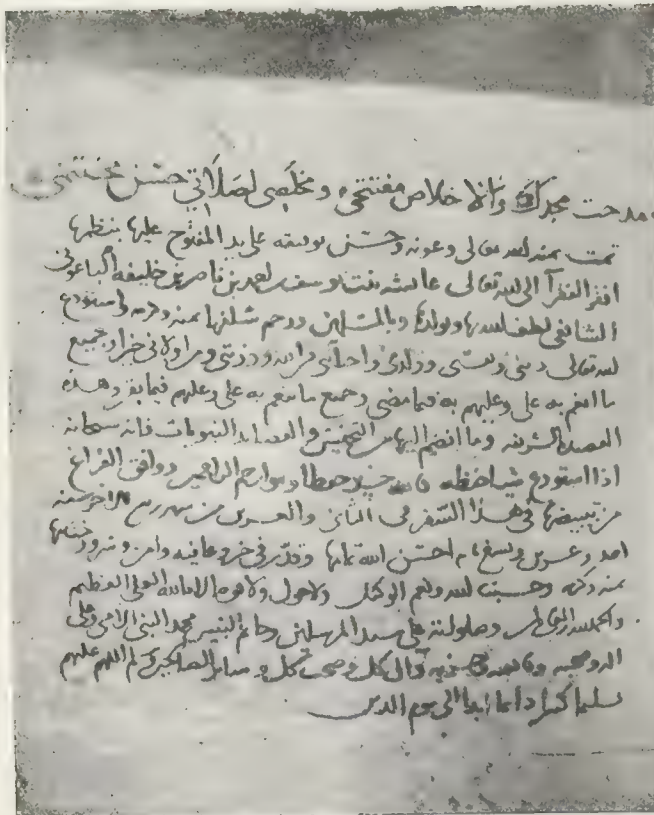 مدحت مجدك والاخلاص مفتتحي ومخلصي لصلاتي حسن مختتمي
تمت بمنه لله تعالى وعونه وحسن توفيقه على يد المفتوح عليها بنظمها
افقر الفقرآ الى الله تعالى عائشه بنت يوسف بن احمد بن ناصر بن خليفه الباعوني
الشافعي لطف الله بها وبولدها وبالمسلمين ورحم سلفها بمنه وكرمه واستودع
الله تعالى ديني ونفسي وولدي واحبآئي وذريتي وما اولاني خيرا وجميع
ما انعم به علي وعليهم به فيما مضى وجميع ما ينعم به علي وعليهم فيما بقي وهذه
القصيده الشريفه وما انضم اليها من التخميس والقصايد النبويات فانه سبحانه
اذا استودع شيا حفظه فالله خير حفظا وهو ارحم الراحمين ووافق الفراغ
من تبييضها في هذا السفر في الثاني والعشرين من شهر ربيع الاخر سنه
احد وعشرين وتسع مايه احسن الله تمامها وقدر في خير وعافيه وامن وسرور ختمها
بمنه وكرمه وحسبنا الله ونعم الوكيل ولا حول ولا قوه الا بالله العلي العظيم
والحمد لله وصلواته على سيد المرسلين وخاتم النبيين محمد النبي الامي وعلى
اله وصحبه وال كل وصحب كل وسائر الصالحين وسلم اللهم عليهم
تسليما كثيرا دائما ابدا الى يوم الدين